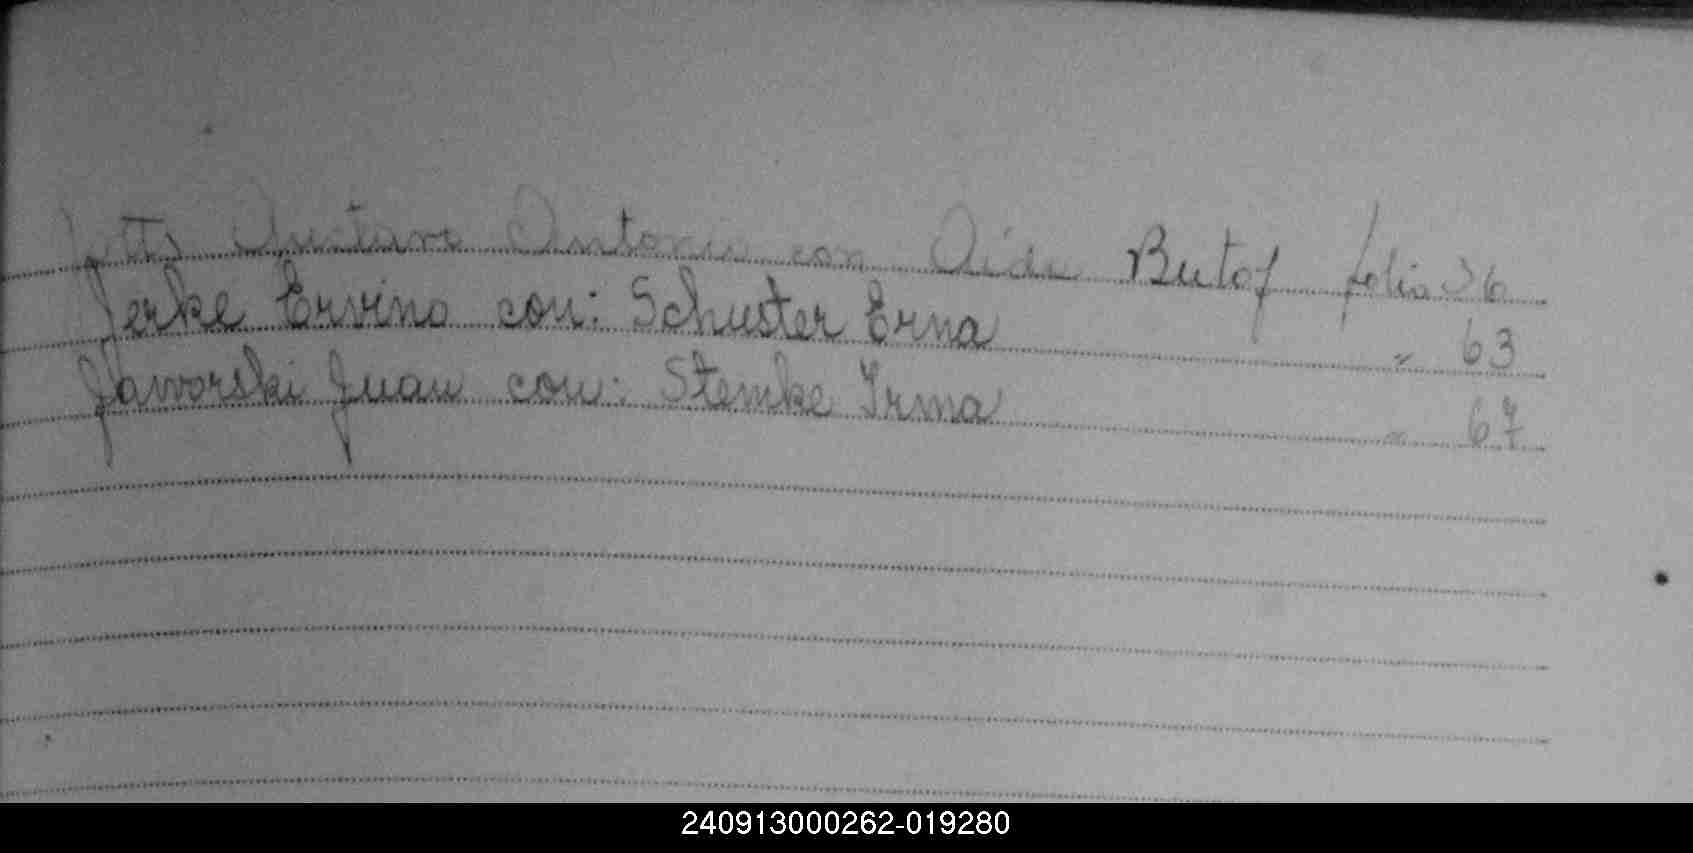 Gustavo Antonio con Aida Butof folio 36
Jerke Ervino con: Schuster Erna " 63
Jaworski Juan con: Stemke Irma " 67
240913000262-019280